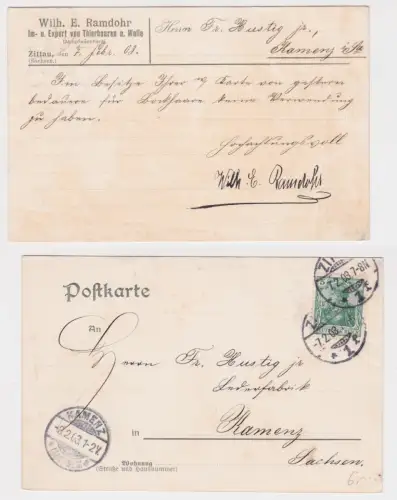 Wilh. E. Ramdohr
Im- u. Export von Thierhaaren u. Wolle
Zittau, den 7. Febr. 03.
(Sachsen.)
Herrn Fr. Hustig jr.,
Kamenz i/Sa
Im Besitze Ihrer w/ Karte von gestern
bedauere für Bockhaare keine Verwendung
zu haben.
Hochachtungsvoll
Wilh. E. Ramdohr
Postkarte
An
Herrn Fr. Hustig jr
Lederfabrik
in Kamenz
Sachsen.
Wohnung
(Straße und Hausnummer)
ZI
7.2.03.7-8N
1f
-7.2.03
1f
KAMENZ
-8.2.03.1-2N